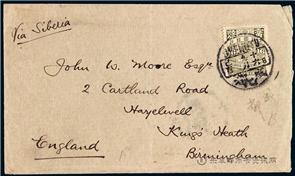 Via Siberia
John W. Moore Esqre
2 Cartland Road
Hazelwell
King's Heath
Birmingham
England